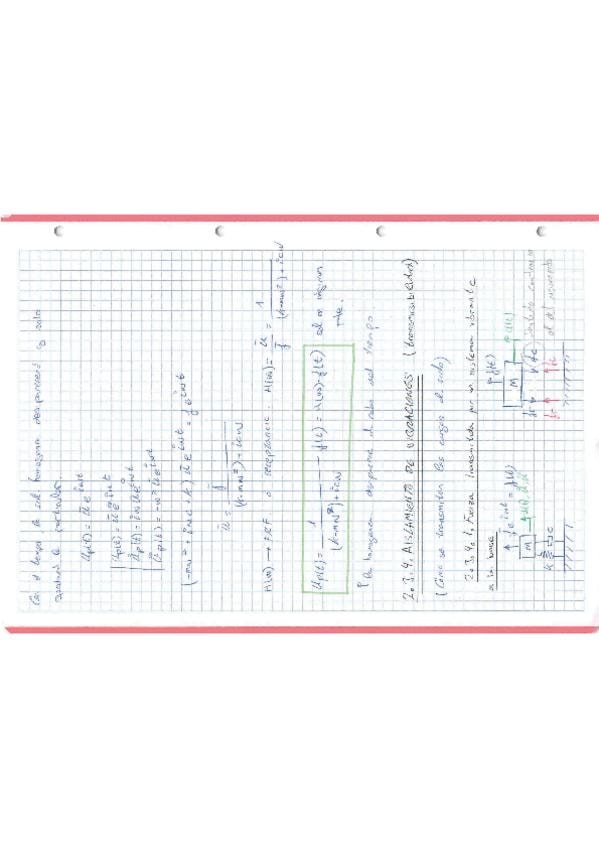 Con el tiempo, la sol. homogénea desaparecerá y solo
quedará la particular.
Up(t) = ū e^iωt
U̇p(t) = iωū e^iωt
Üp(t) = -ω² ū e^iωt
(-mω² + iωc + k) ū e^iωt = f̄ e^iωt
ū = f̄ / ((k-mω²) + icω)
H(ω) → FRF o receptancia. H(ω) = ū / f̄ = 1 / ((k-mω²) + icω)
Up(t) = 1 / ((k-mω²) + icω) f(t) = H(ω)·f(t)
sol en régimen
La homogénea desaparece al cabo del tiempo
2.3.4. AISLAMIENTO DE VIBRACIONES (transmisibilidad)
(Cómo se transmiten las cargas al suelo)
2.3.4.1. Fuerza transmitida por un sistema vibrante
a su base
f̄ e^iωt = f(t)
M
K
c
f(t)
M
sentido contrario
al del movimiento